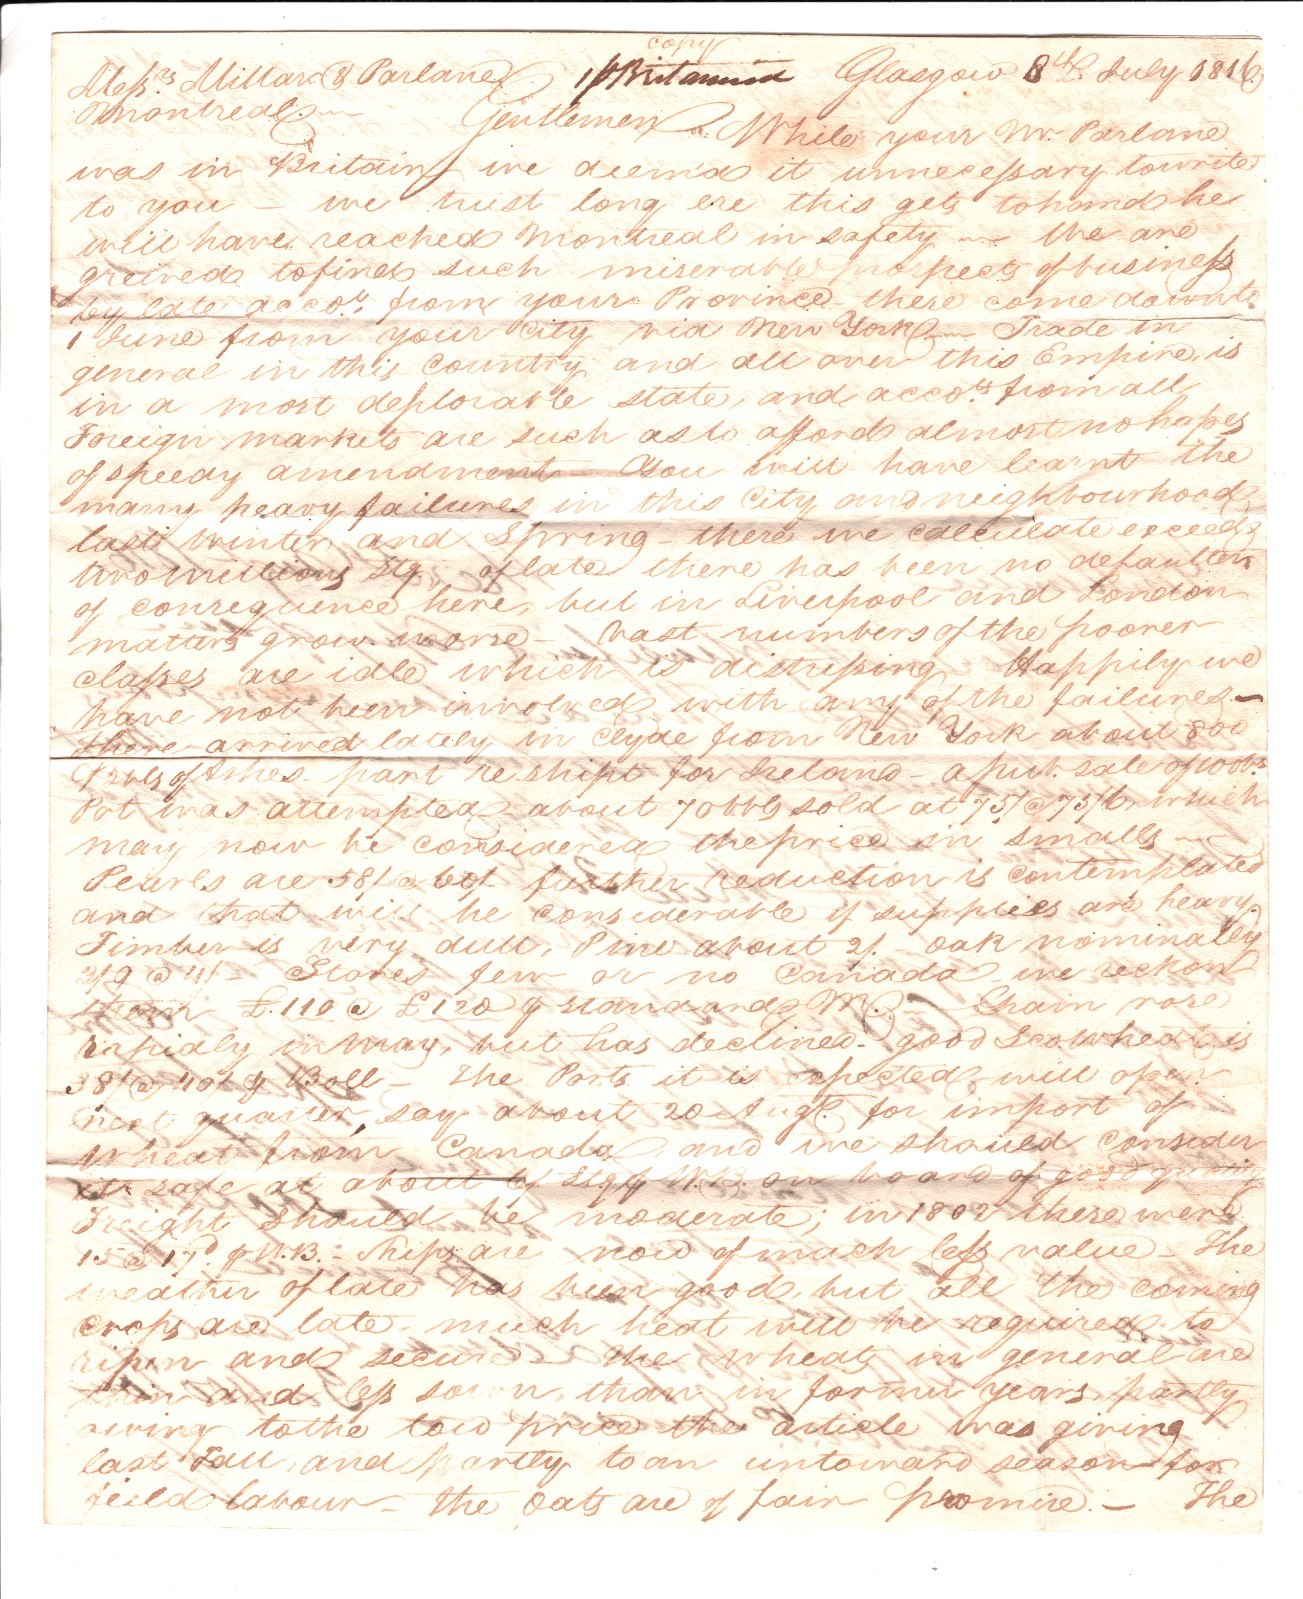 copy
Messrs Millar & Parlane 1 p Britannia Glasgow 8th July 1816
Montreal Gentlemen While your Mr. Parlane
was in Britain we deem'd it unnecessary to write
to you — we trust long ere this gets to hand he
will have reached Montreal in safety — We are
greived to find such miserable prospects of business
by late accots. from your Province — these come down to
1 June from your City via New York — Trade in
general in this Country and all over this Empire, is
in a most deplorable state, and accots from all
Foreign markets are such as to afford almost no hopes
of speedy amendment — You will have learnt the
many heavy failures in this City and neighbourhood
last Winter and Spring — these we calculate exceeds
two millions Stg., of late there has been no defaulters
of consequence here, but in Liverpool and London
matters grow worse — Vast numbers of the poorer
classes are idle which is distressing Happily we
have not been involved with any of the failures —
There arrived lately in Clyde from New York about 800
Brls of Ashes part reshipt for Ireland — a pub. sale of 100 bs.
Pot was attempted — about 70 bbls sold at 75/ @ 75/6 which
may now be considered the price in smalls —
Pearls are 58/ @ 60/ further reduction is contemplated
and that will be considerable if supplies are heavy.
Timber is very dull, Pine about 2/. — Oak nominally
3/9 @ 4/ — Staves few or no Canada we reckon
them £.110 @ £120 p standard M. — Grain rose
rapidly in May, but has declined — good Scotwheat is
38/ @ 40/ p Boll — The Ports it is expected will open
next quarter, say about 20 Augt for import of
Wheat from Canada, and we should consider
it safe at about 6/ Stg p W.B. on board of good quality
Freight should be moderate; in 1802 these were
15 @ 17d p W.B. — Ships are now of much less value — The
weather of late has been good, but all the coming
crops are late — much heat will be required to
ripen and secure — the Wheats in general are
thin and less sown, than in former years, partly
owing to the low price the article was giving
last Fall, and partly to an untoward season for
feild labour — the Oats are of fair promise. — The